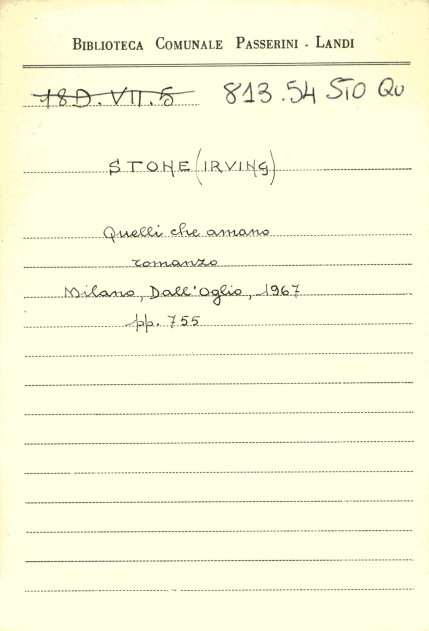 BIBLIOTECA COMUNALE PASSERINI - LANDI
18D.VII.5 813.54 STO QU
STONE (IRVING)
Quelli che amano
romanzo
Milano, Dall'Oglio, 1967
pp. 755